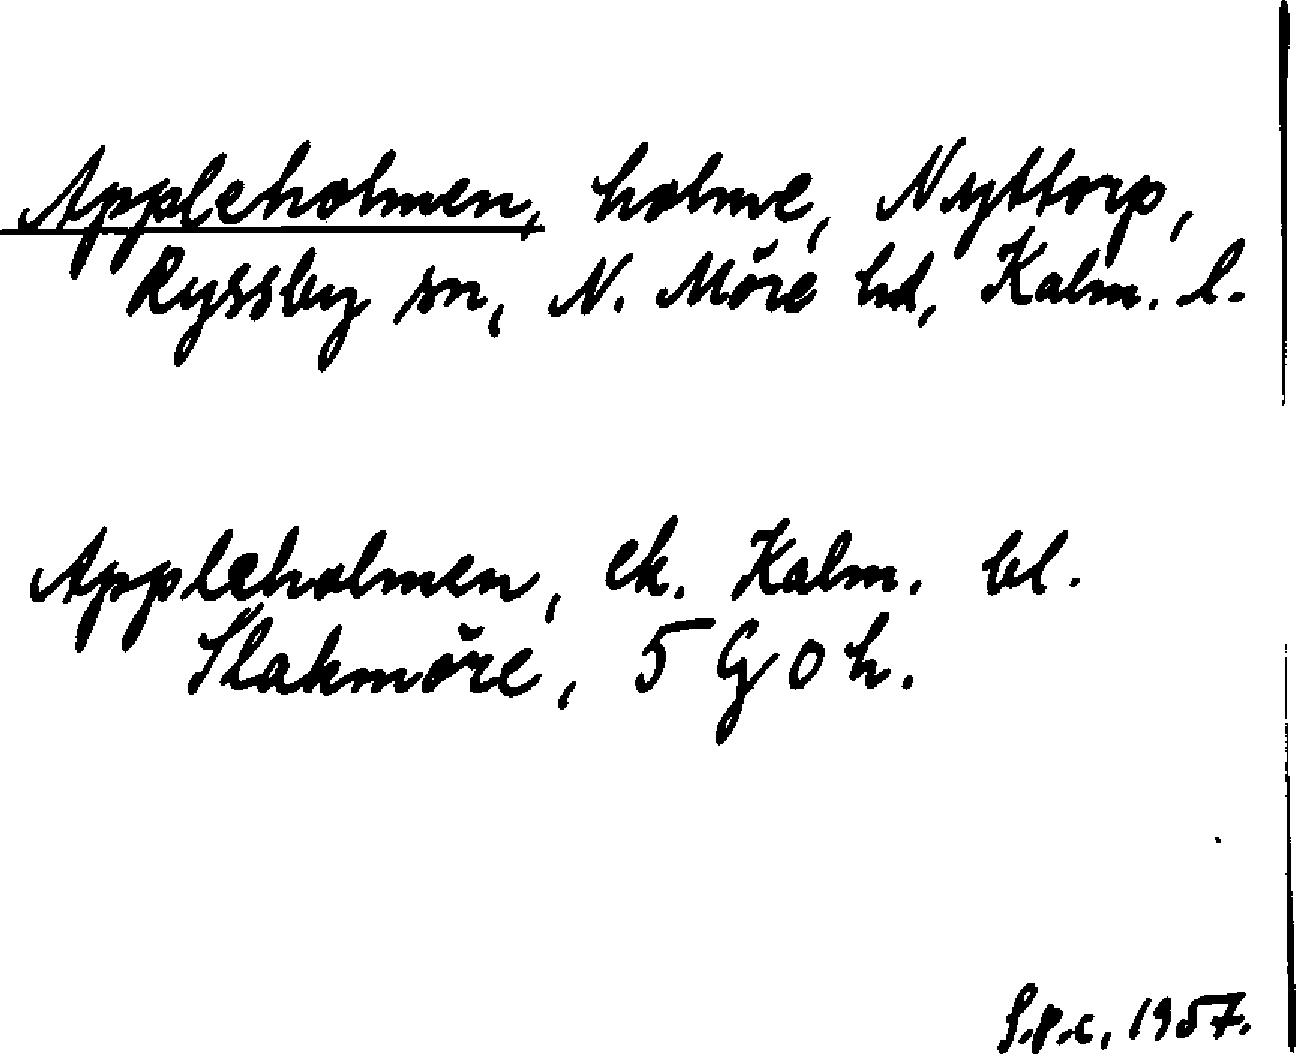 Appleholmen, holme, Nyttorp,
Ryssby sn, N. Möre hd, Kalm. l.
Appleholmen, ek. Kalm. bl.
Slakmöre, 5 G o h.
S.p.c, 1957.